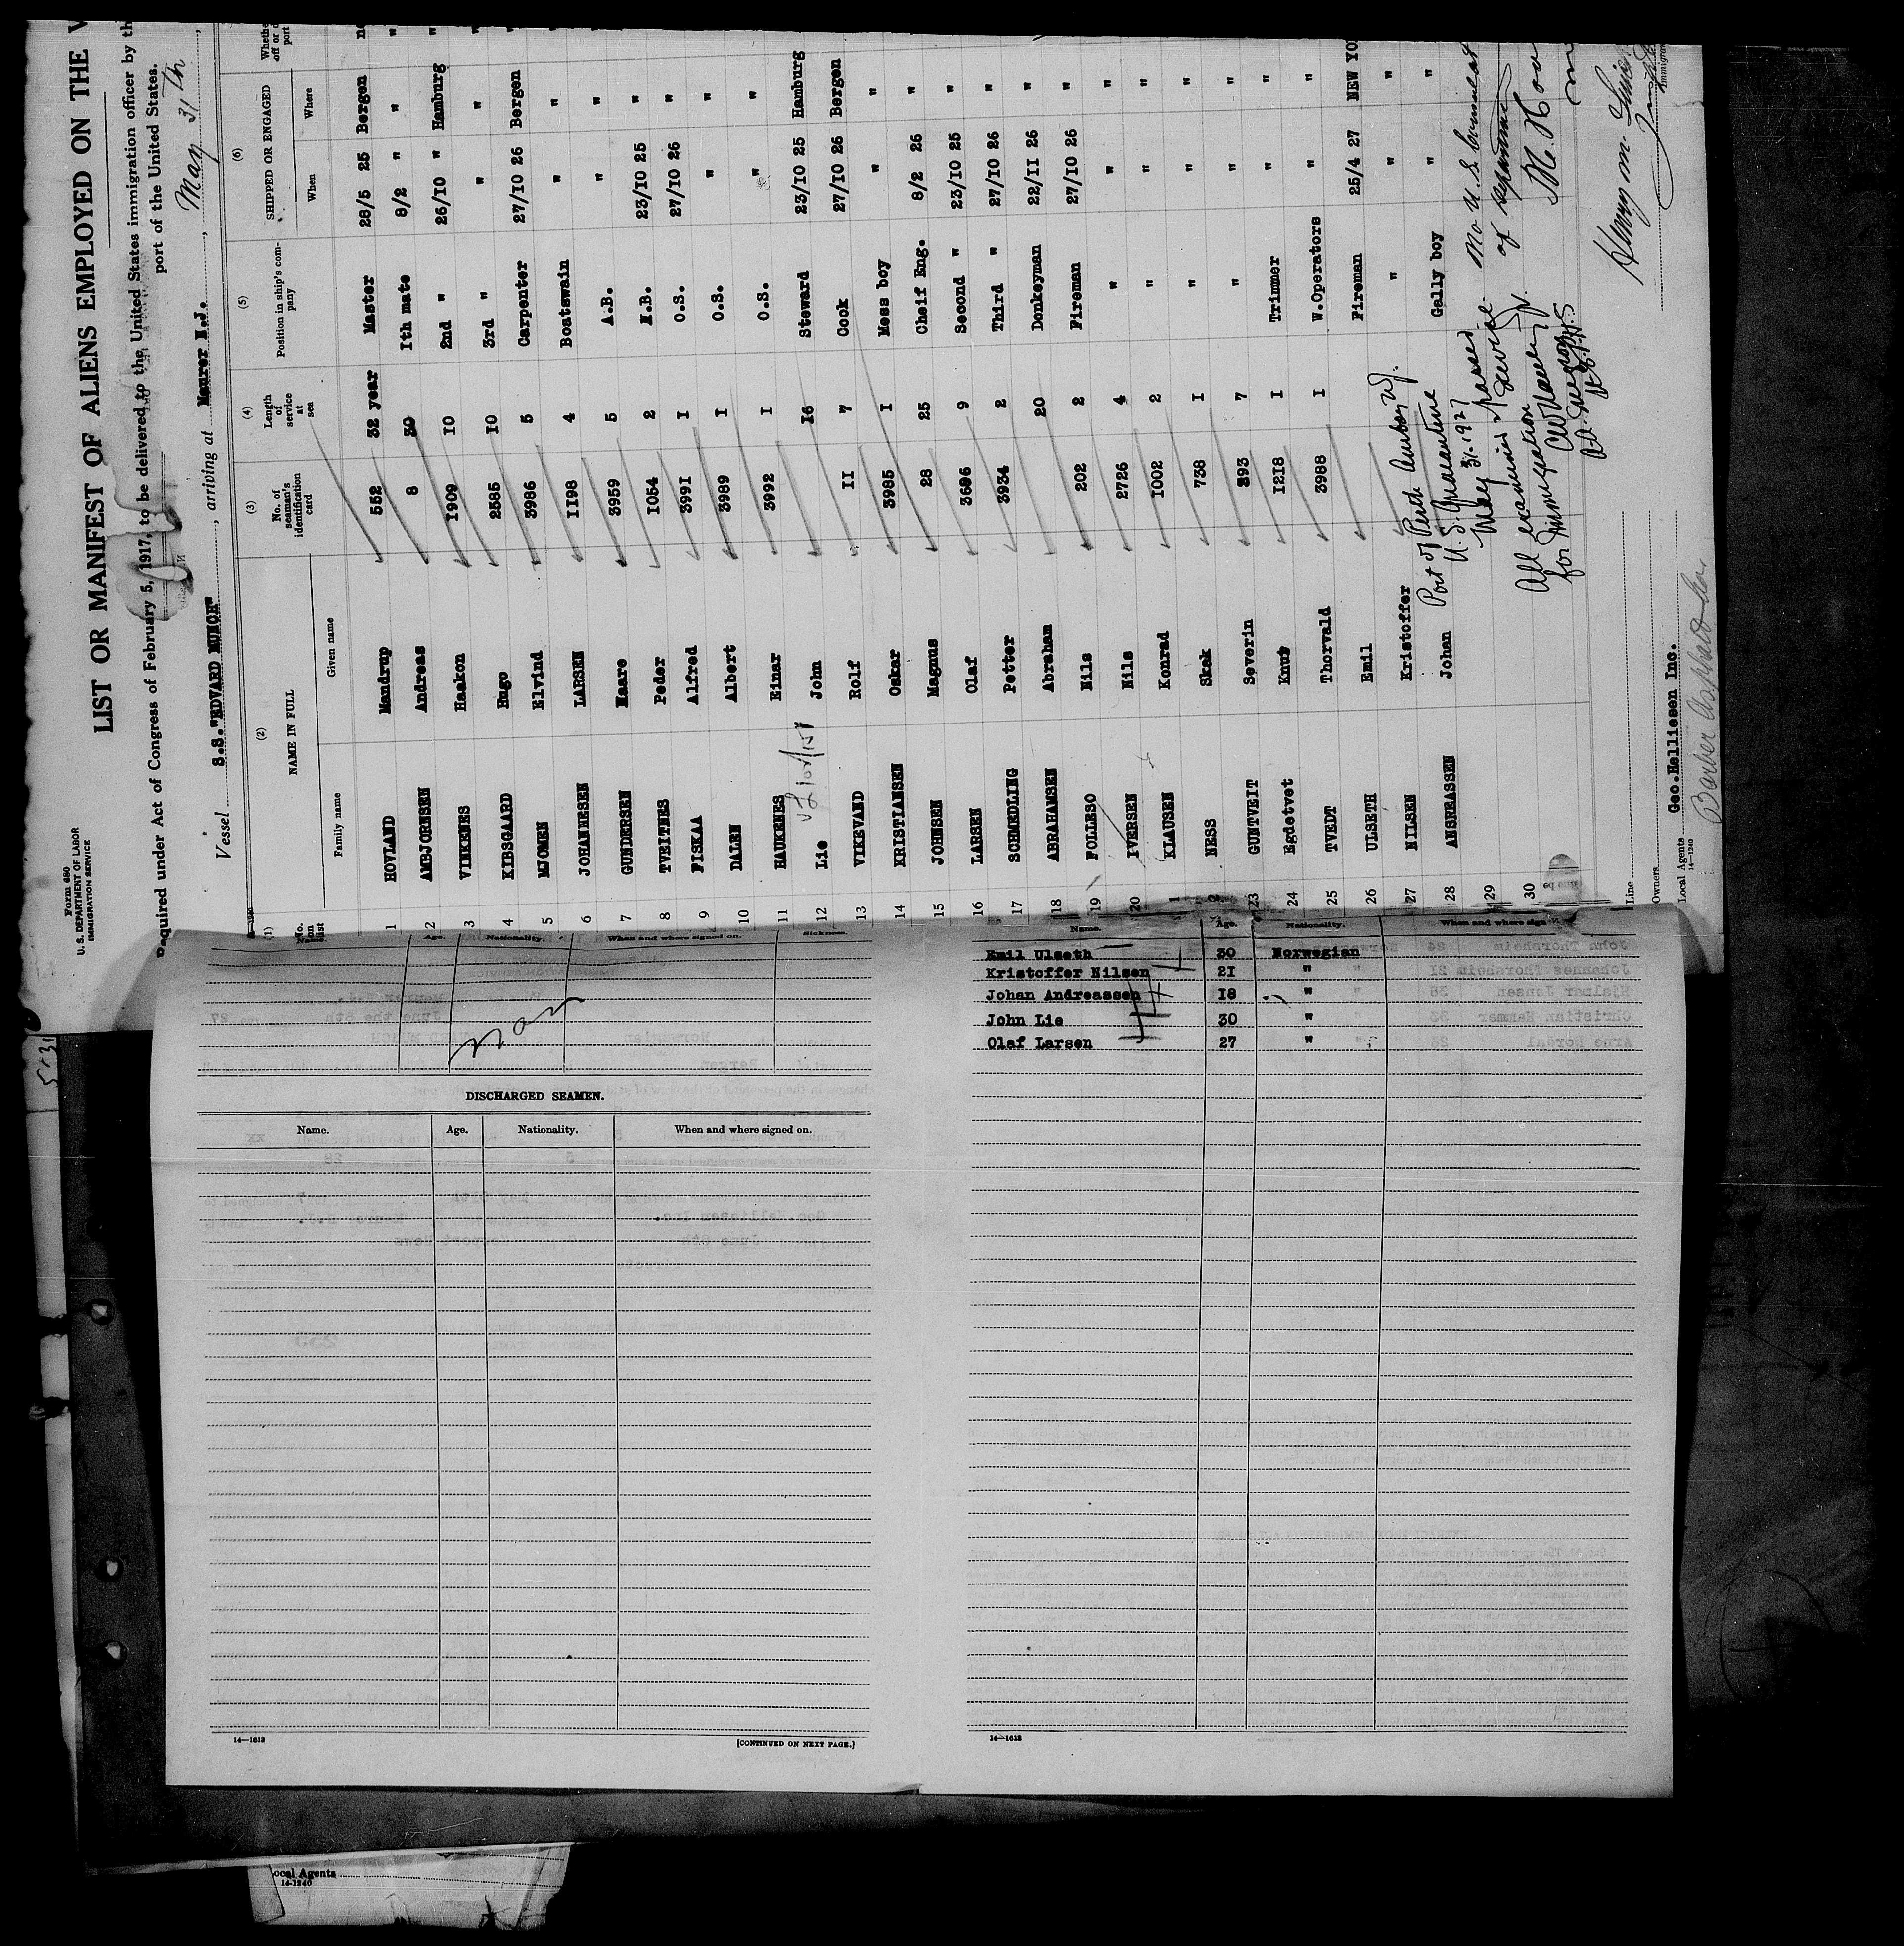 Form 680
U. S. DEPARTMENT OF LABOR
IMMIGRATION SERVICE
LIST OR MANIFEST OF ALIENS EMPLOYED ON THE
Required under Act of Congress of February 5, 1917, to be delivered to the United States immigration officer by th
port of the United States.
Vessel S.S."EDVARD MUNCH", arriving at Maurer N.J., May 31th,
(1) (2) (3) (4) (5) (6)
No. on list NAME IN FULL No. of seaman's identification card Length of service at sea Position in ship's company SHIPPED OR ENGAGED Whethe
off or d
port
Family name Given name When Where
1 HOVLAND Mandrup 552 32 year Master 28/5 25 Bergen no
2 AMBJORNSEN Andreas 8 30 Ith mate 8/2 " " "
3 VINKENES Haakon I909 I0 2nd " 26/I0 " Hamburg "
4 KIBSGAARD Hugo 2585 I0 3rd " " " "
5 MJOMEN Elvind 3986 5 Carpenter 27/I0 26 Bergen "
6 JOHANNESEN LARSEN II98 4 Boatswain " "
7 GUNDERSEN Kaare 3959 5 A.B. " "
8 TVEITNES Peder I054 2 M.B. 23/I0 25 "
9 FISKAA Alfred 399I I O.S. 27/I0 26 "
10 DALEN Albert 3989 I O.S. " "
11 HAUKENES Einar 3992 I O.S. " "
12 Lie John I6 Steward 23/I0 25 Hamburg
13 VIKEVAND Rolf II 7 Cook 27/I0 26 Bergen
14 KRISTIANSEN Oskar 3985 I Mess boy " "
15 JOHNSEN Magnus 28 25 Cheif Eng. 8/2 26 "
16 LARSEN Olaf 3686 9 Second " 23/I0 25 "
17 SCHAEDLING Peter 3934 2 Third " 27/I0 26 "
18 ABRAHAMSEN Abraham 20 Donkeyman 22/II 26 "
19 FOLLESO Nils 202 2 Fireman 27/I0 26 "
20 IVERSEN Nils 2726 4 " " "
1 KLAUSEN Konrad I002 2 " " "
2 NESS Skak 738 I " " "
23 GUNTVEIT Severin 893 7 " " "
24 Egdetvet Knut I2I8 I Trimmer " "
25 TVEDT Thorvald 3988 I W.Operators " "
26 ULSETH Emil Fireman 25/4 27 NEW YO
27 NILSEN Kristoffer " " "
28 ANSREASSEN Johan Gally boy " "
29
30
Port of Perth Amboy N.J.
U. S. Quarantine
May 31. 1927
All examined & passed
for immigration service
No U.S. Consulate
of
M. Hov
Henry M.
Line
Owners
Local Agents Geo.Helliesen Inc.
14—1240
Barber Asphalt Co.
Name. Age. Nationality. When and where signed on. Sickness.
DISCHARGED SEAMEN.
Name. Age. Nationality. When and where signed on.
14—1613 [CONTINUED ON NEXT PAGE.]
Name. Age. Nationality. When and where sign
Emil Ulseth 30 Norwegian
Kristoffer Nilsen 2I "
Johan Andreassen I8 "
John Lie 30 "
Olaf Larsen 27 "
14—1613
ocal Agents
14-1240